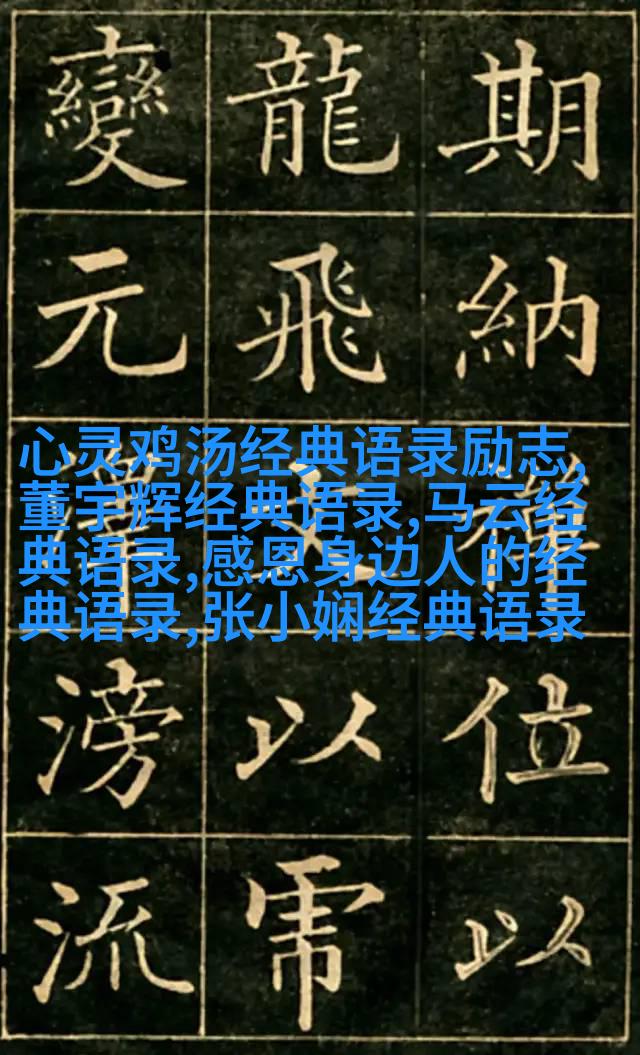 期納位以
龍飛以
變元澤滂流
心灵鸡汤经典语录励志,
董宇辉经典语录,马云经
典语录,感恩身边人的经
典语录,张小娴经典语录